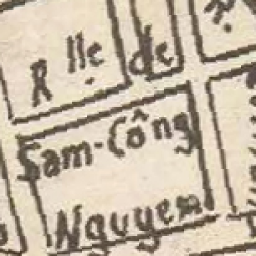 Rlle de
Sam-Công
Nguyem